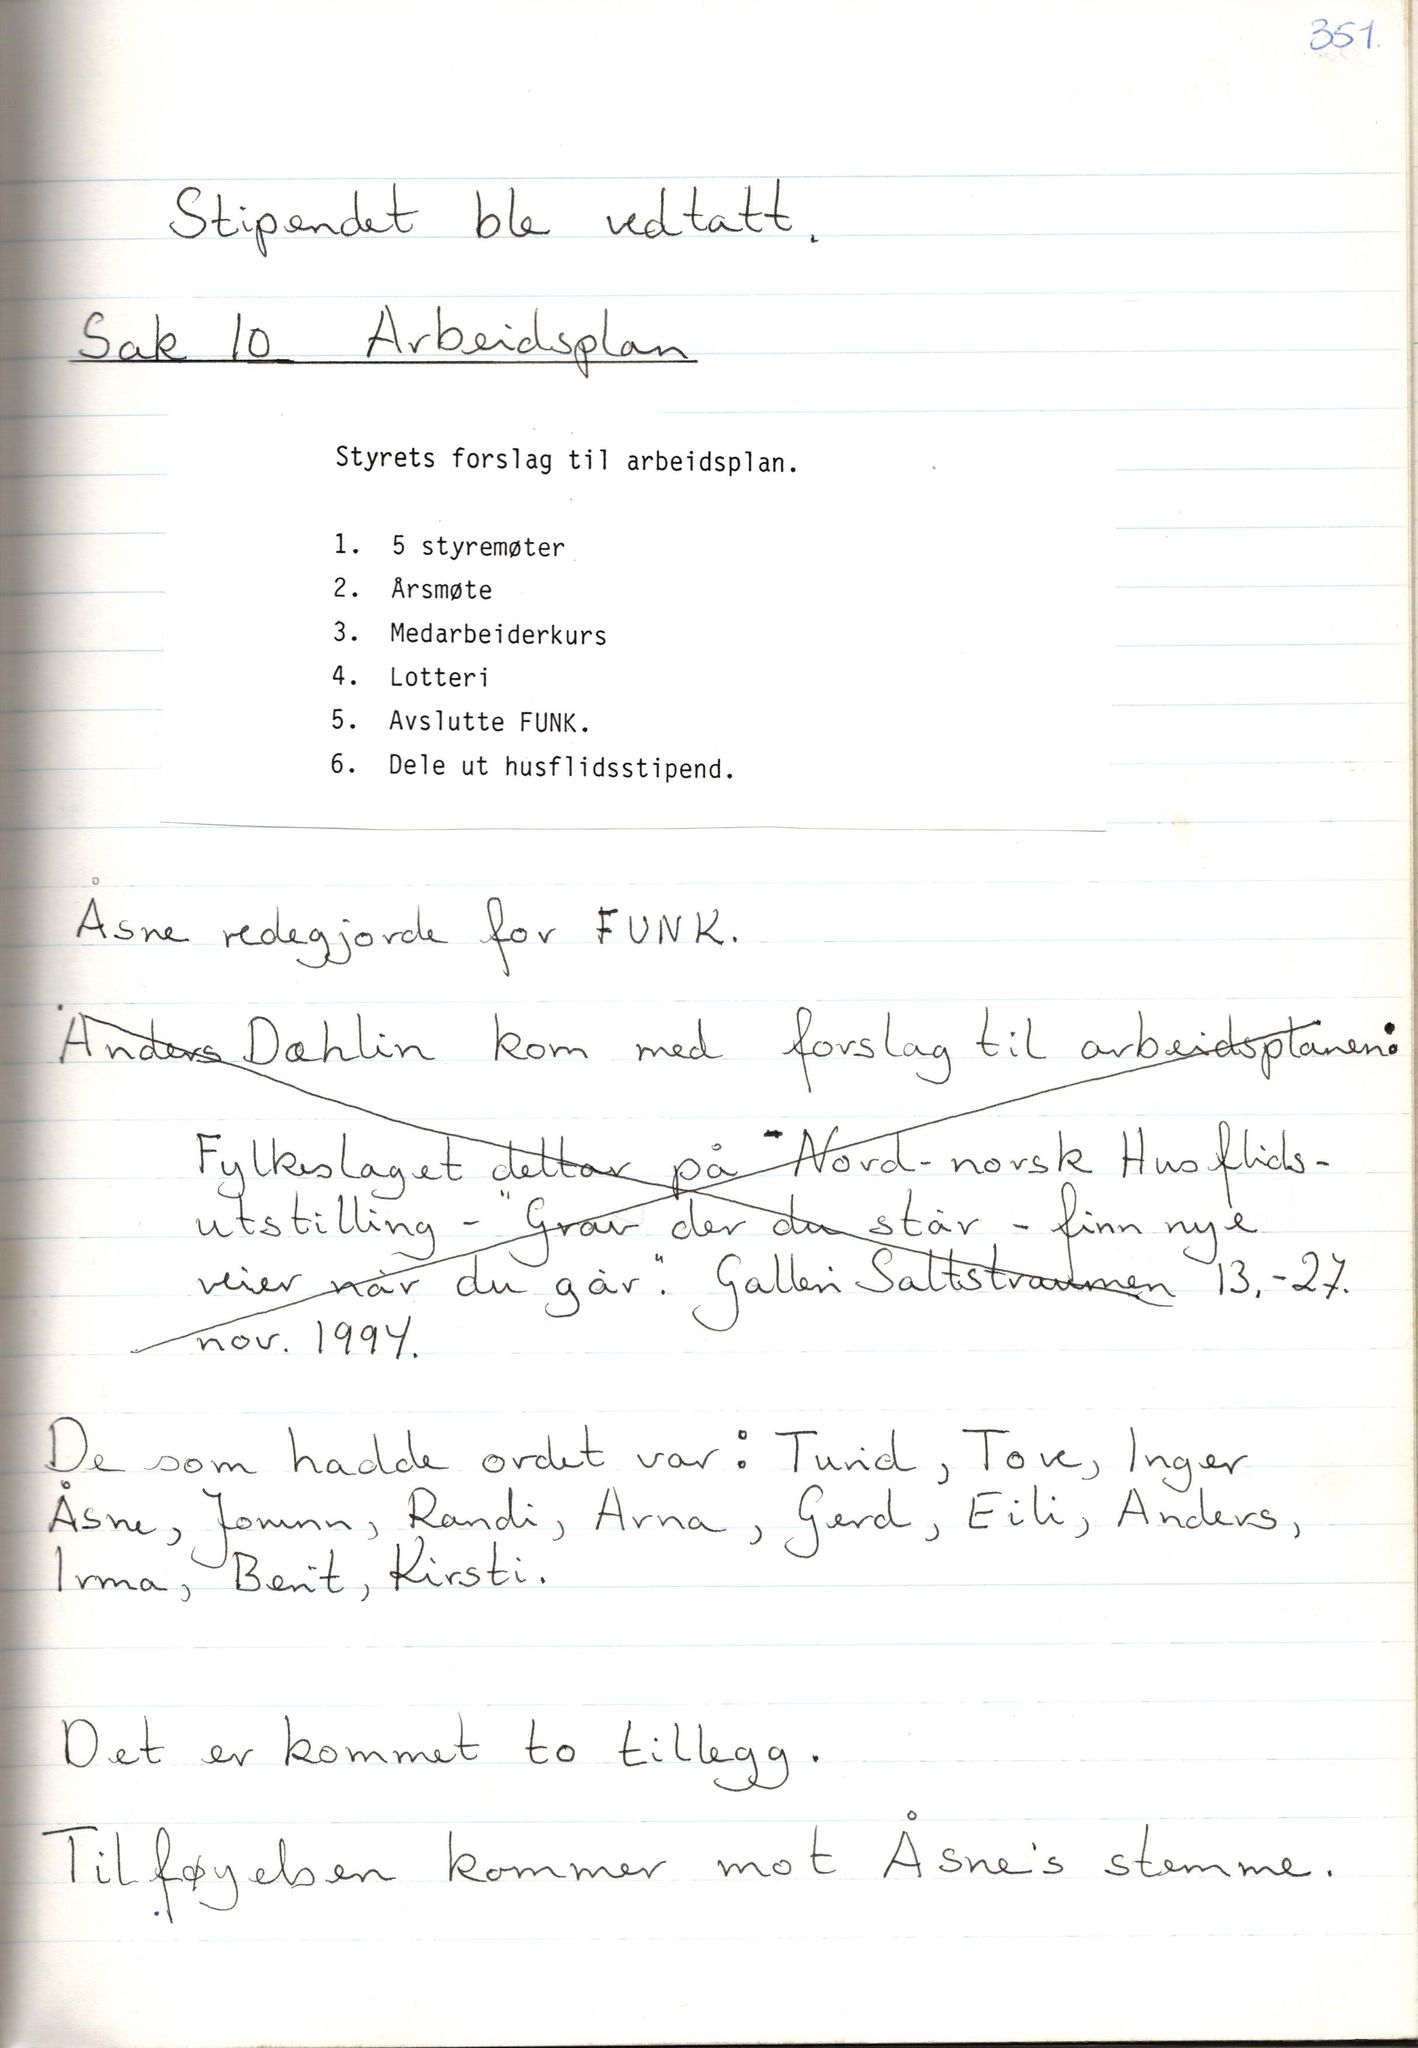 351.
Stipendet ble vedtatt.
Sak 10 Arbeidsplan
Styrets forslag til arbeidsplan.
1. 5 styremøter
2. Årsmøte
3. Medarbeiderkurs
4. Lotteri
5. Avslutte FUNK.
6. Dele ut husflidsstipend.
Åsne redegjorde for FUNK.
Anders Dæhlin kom med forslag til arbeidsplanen:
Fylkeslaget deltar på "Nord-norsk Husflids-
utstilling - "Grav der du står - finn nye
veier når du går". Galleri Saltstraumen 13.-27.
nov. 1994.
De som hadde ordet var: Turid, Tove, Inger
Åsne, Jorunn, Randi, Arna, Gerd, Eili, Anders,
Irma, Berit, Kirsti.
Det er kommet to tillegg.
Tilføyelsen kommer mot Åsne's stemme.